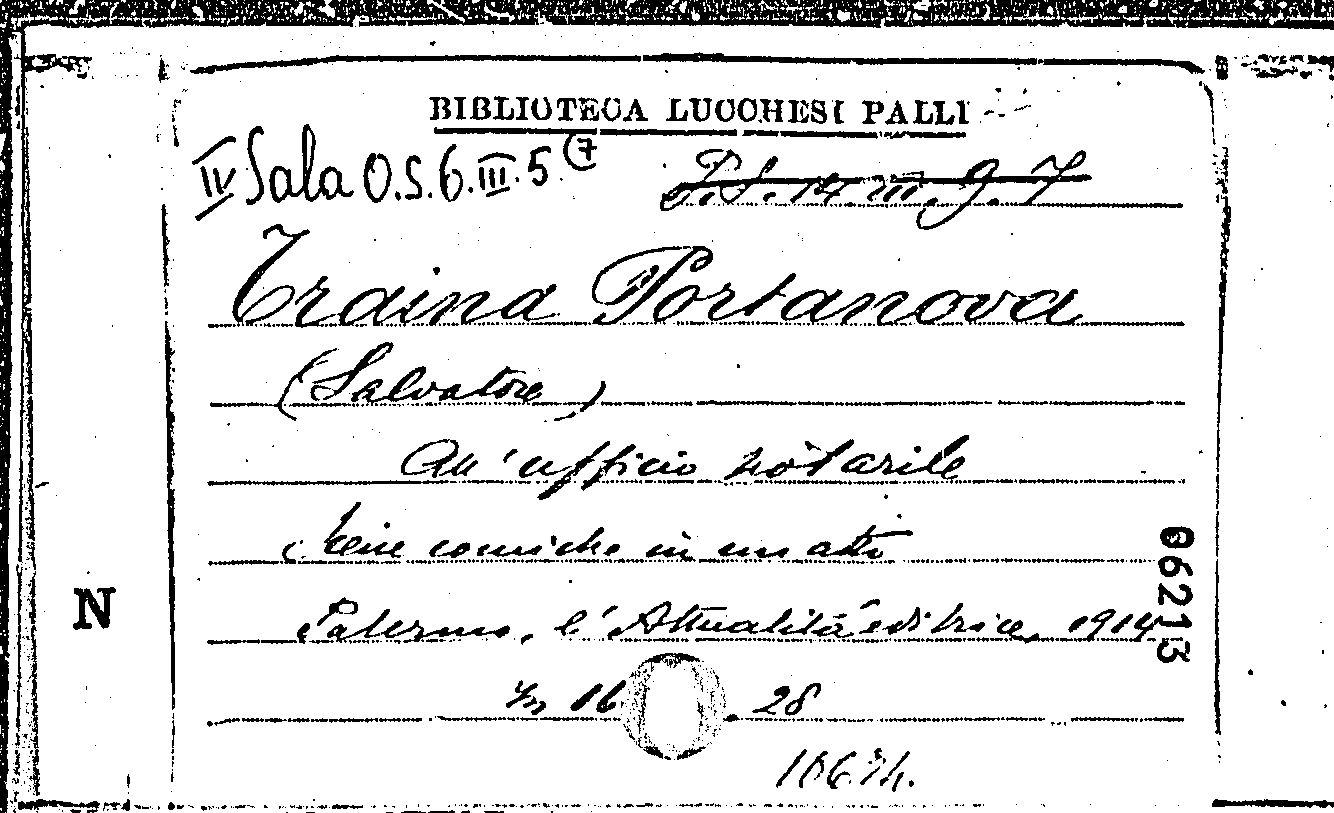 BIBLIOTECA LUCCHESI PALLI
IV Sala O.S.6.III.5.(7
Traina Portanova
(Salvatore)
All'ufficio notarile
Scene comiche in un atto
Palermo, l'Attualità editrice, 1914
In 16 . 28
06213
N